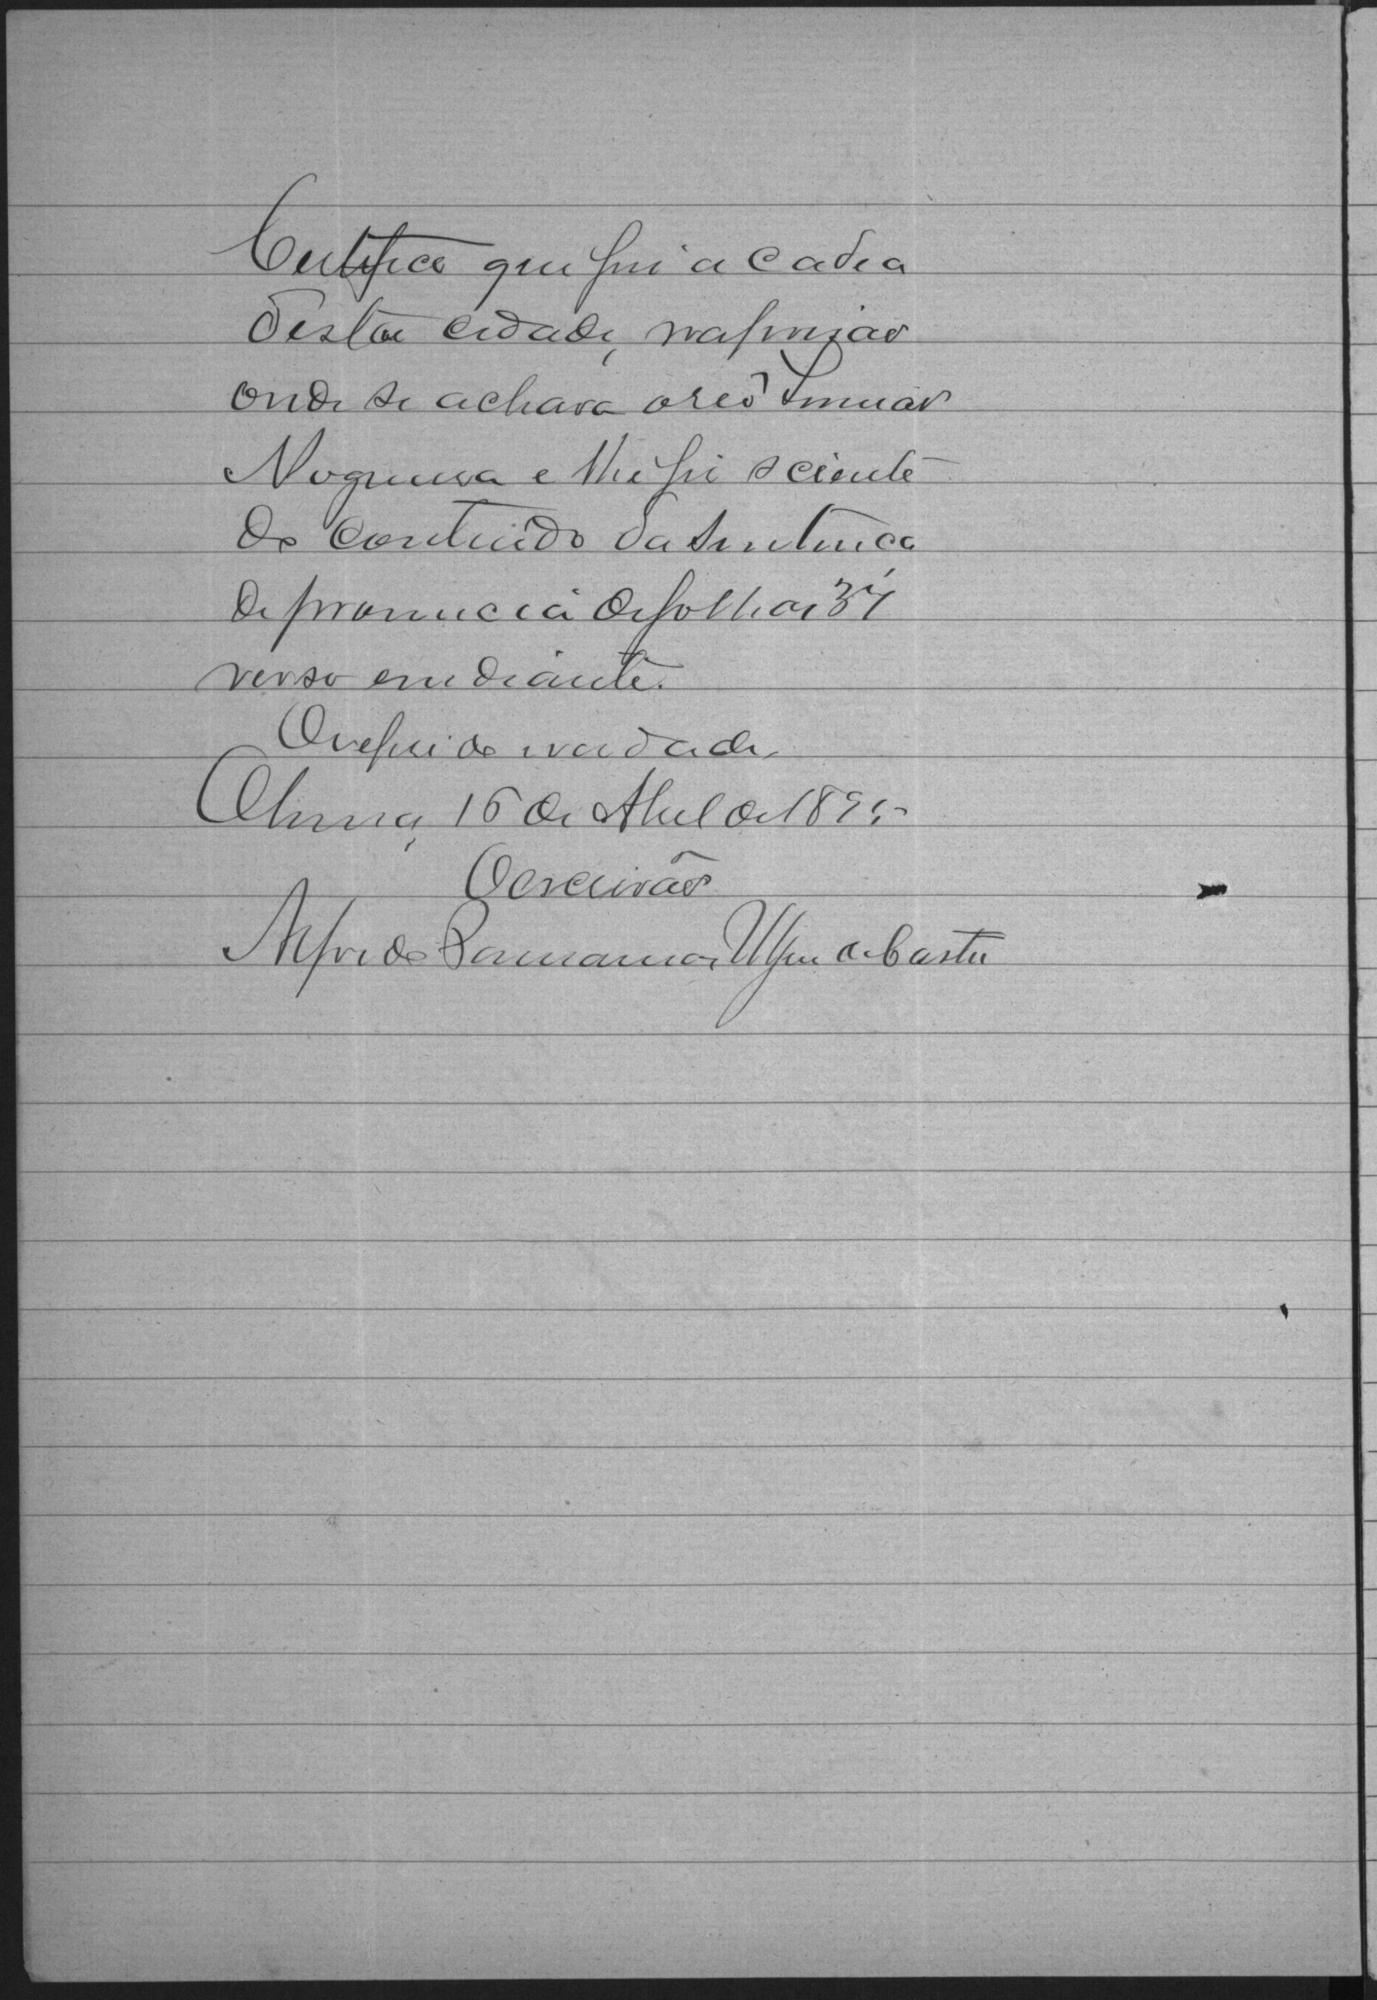 Certifico que fui a cadea
desta cidade, na prisão
onde se achava o réo Simião
Nogueira e lhe fiz sciente
do conteúdo da sentença
de pronuncia de folhas 34
verso em diante.
O referido verdade,
16 de Abril de 1895
O escrivão
Alfredo de Castro